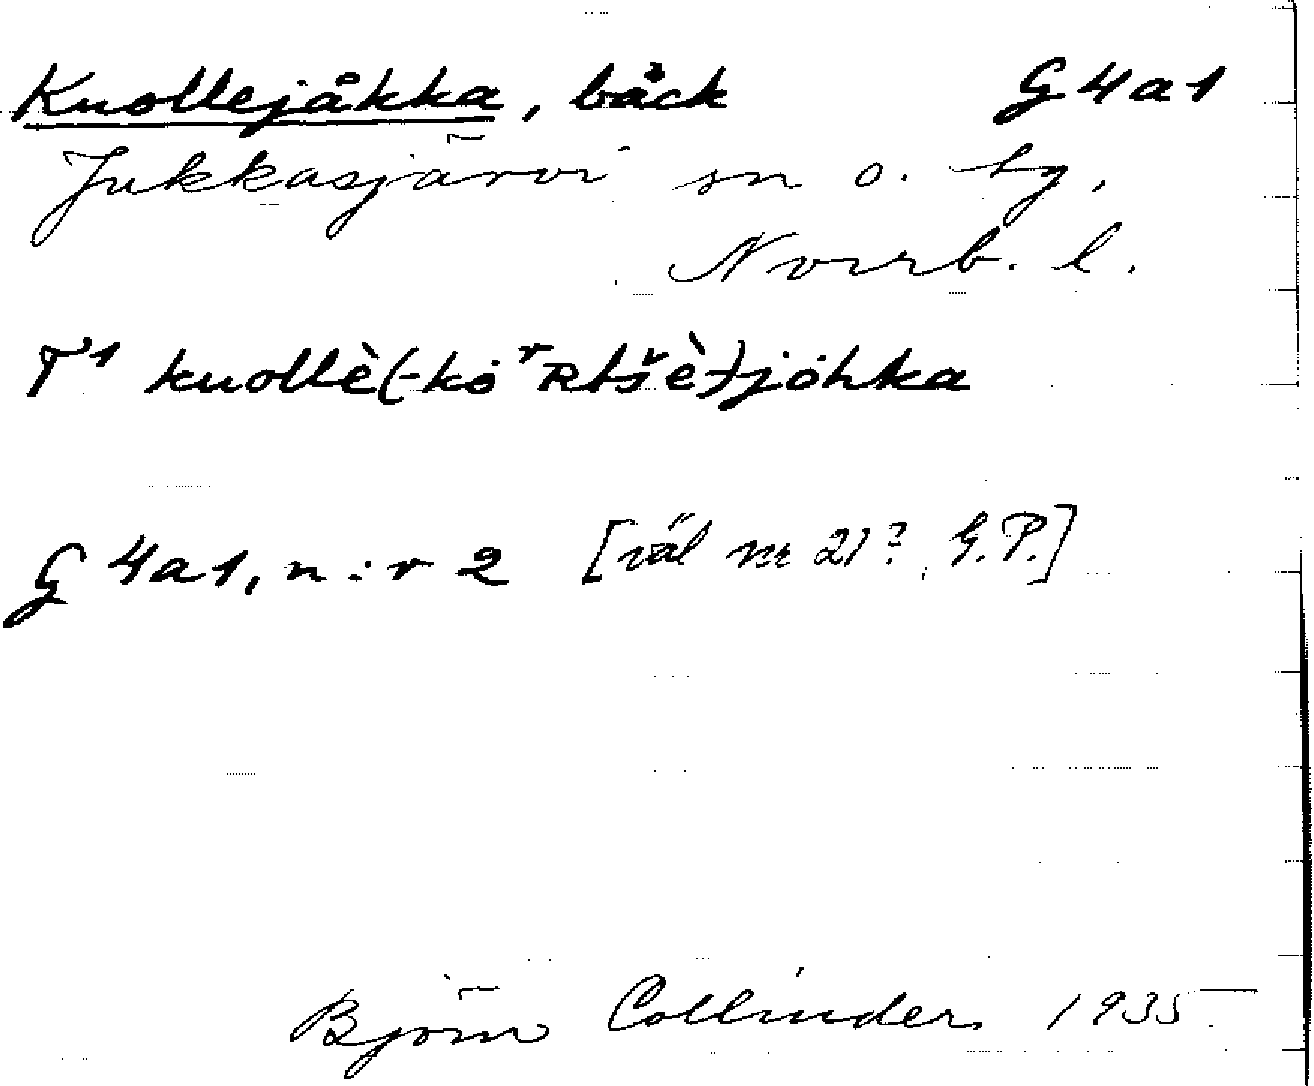 Kuollejåkka, bäck G4a1
Jukkasjärvi sn o. tg,
Norrb. l.
T1 kuollè(-kȯʳRtšè-)jȯhka
G 4a1, n:r 2 [väl nr 21? G.P.]
Björn Collinder 1935